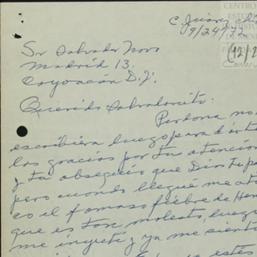 CENTRO
C. Juárez
9/24/72
(12/2
Sr Salvador Novo
Madrid 13.
Coyoacán D.F.
Querido Salvadorcito:
Perdona no
escribiera luego para darte
las gracias por tu atención
y tu obsequio que Dios te pa
pero cuando llegué me ata
có el famoso fiebre de Hen
que es tan molesto, luego
me inyecté y ya me siento
estés